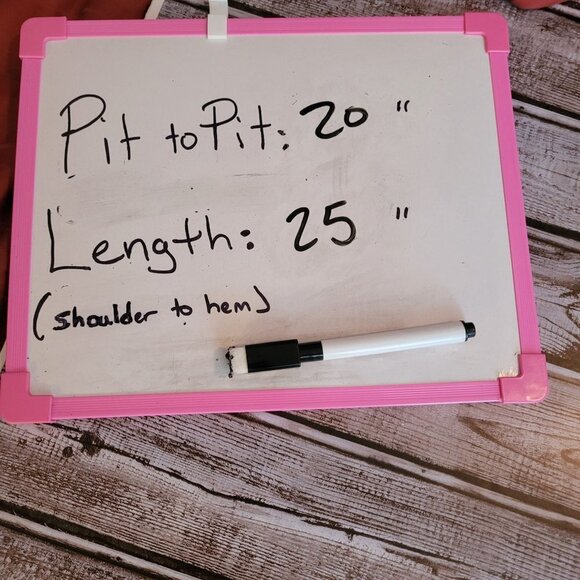 Pit to Pit: 20 "
Length: 25 "
(shoulder to hem)